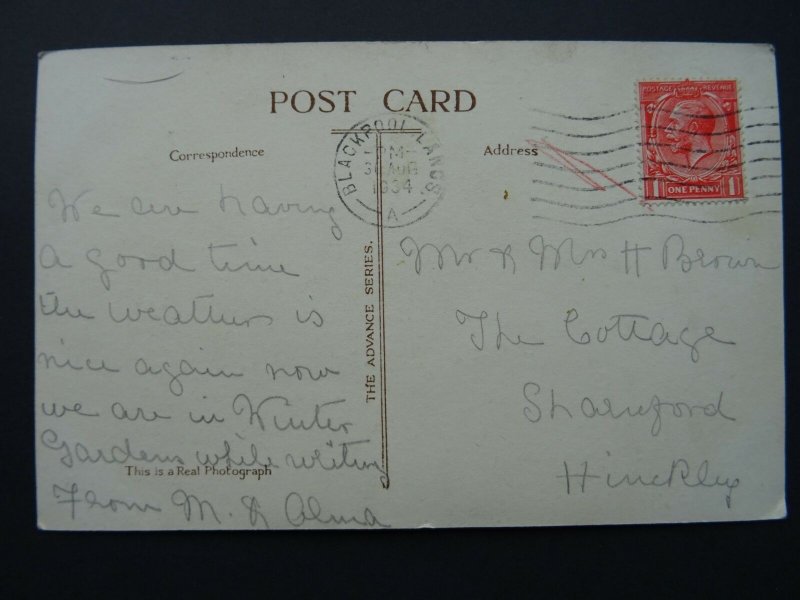 POST CARD
Correspondence
Address
BLACKPOOL. LANCS.
PM
AUG
1934
A
POSTAGE REVENUE
1 ONE PENNY 1
We are having
a good time
the weather is
nice again now
we are in Winter
Gardens while writing
From M. & Alma
This is a Real Photograph
THE ADVANCE SERIES.
Mr & Mrs H Brown
The Cottage
Sharnford
Hinckley